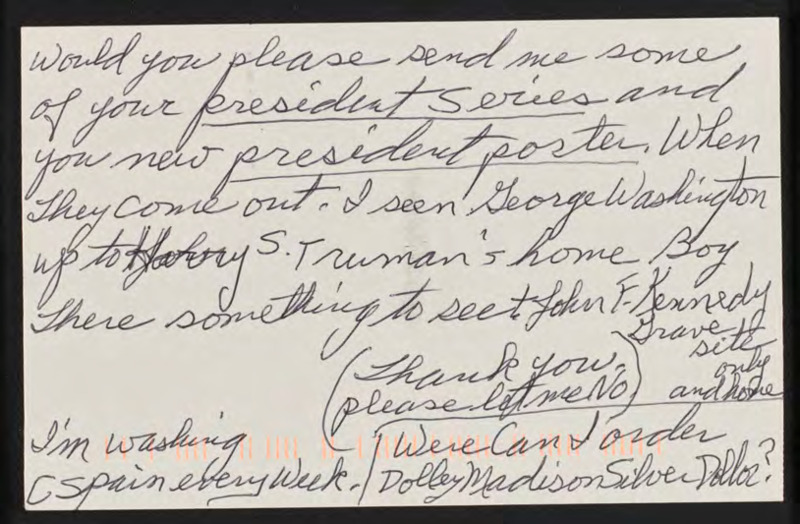 Would you please send me some
of your president Series and
you new president poster. When
They come out. I seen George Washington
up to Harry S. Truman's home Boy
There something to see & John F. Kennedy
Grave site only and home
(Thank you.
please let me No)
I'm washing
CSpain every Week.
Were Can I order
Dolley Madison Silver Dollor?